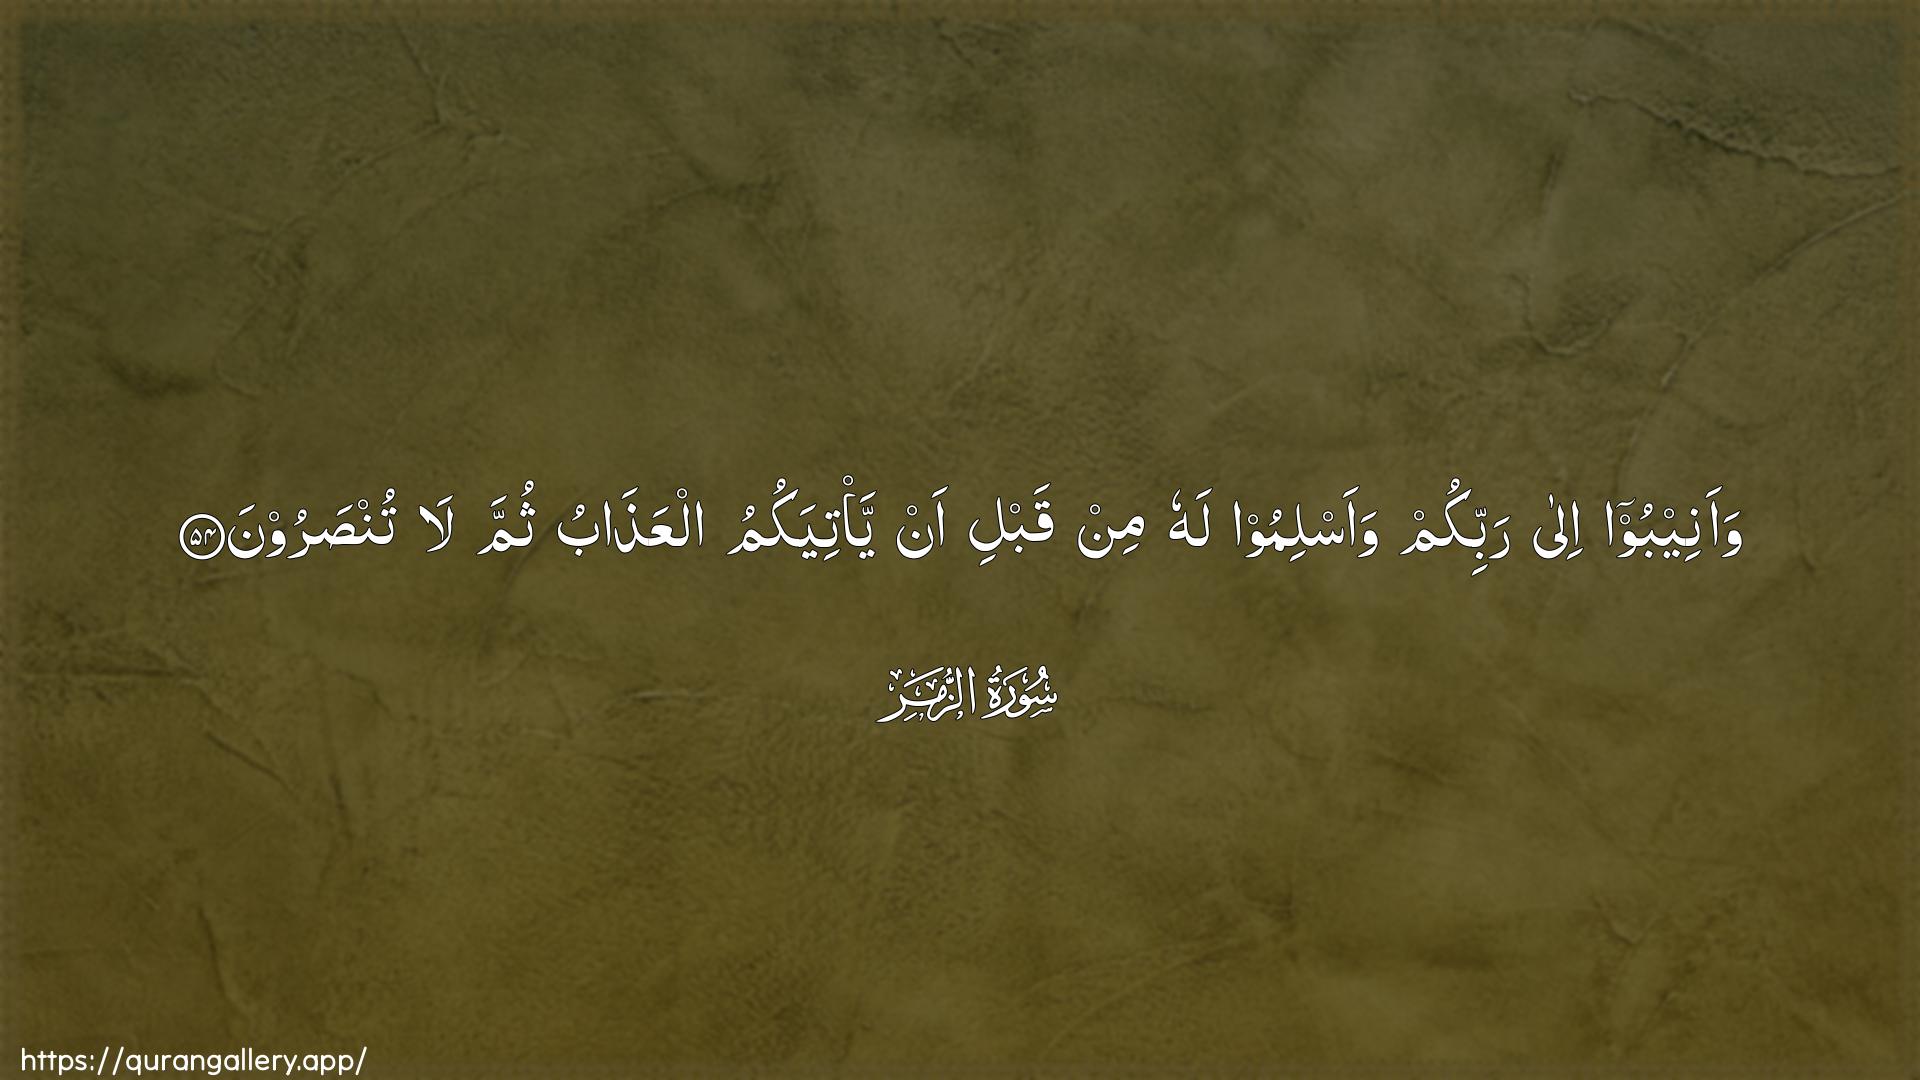 وَاَنِيْبُوْۤا اِلٰى رَبِّكُمْ وَاَسْلِمُوْا لَهٗ مِنْ قَبْلِ اَنْ يَّاْتِيَكُمُ الْعَذَابُ ثُمَّ لَا تُنْصَرُوْنَ۝۵۴
سُوۡرَةُ الزُّمَر
https://qurangallery.app/